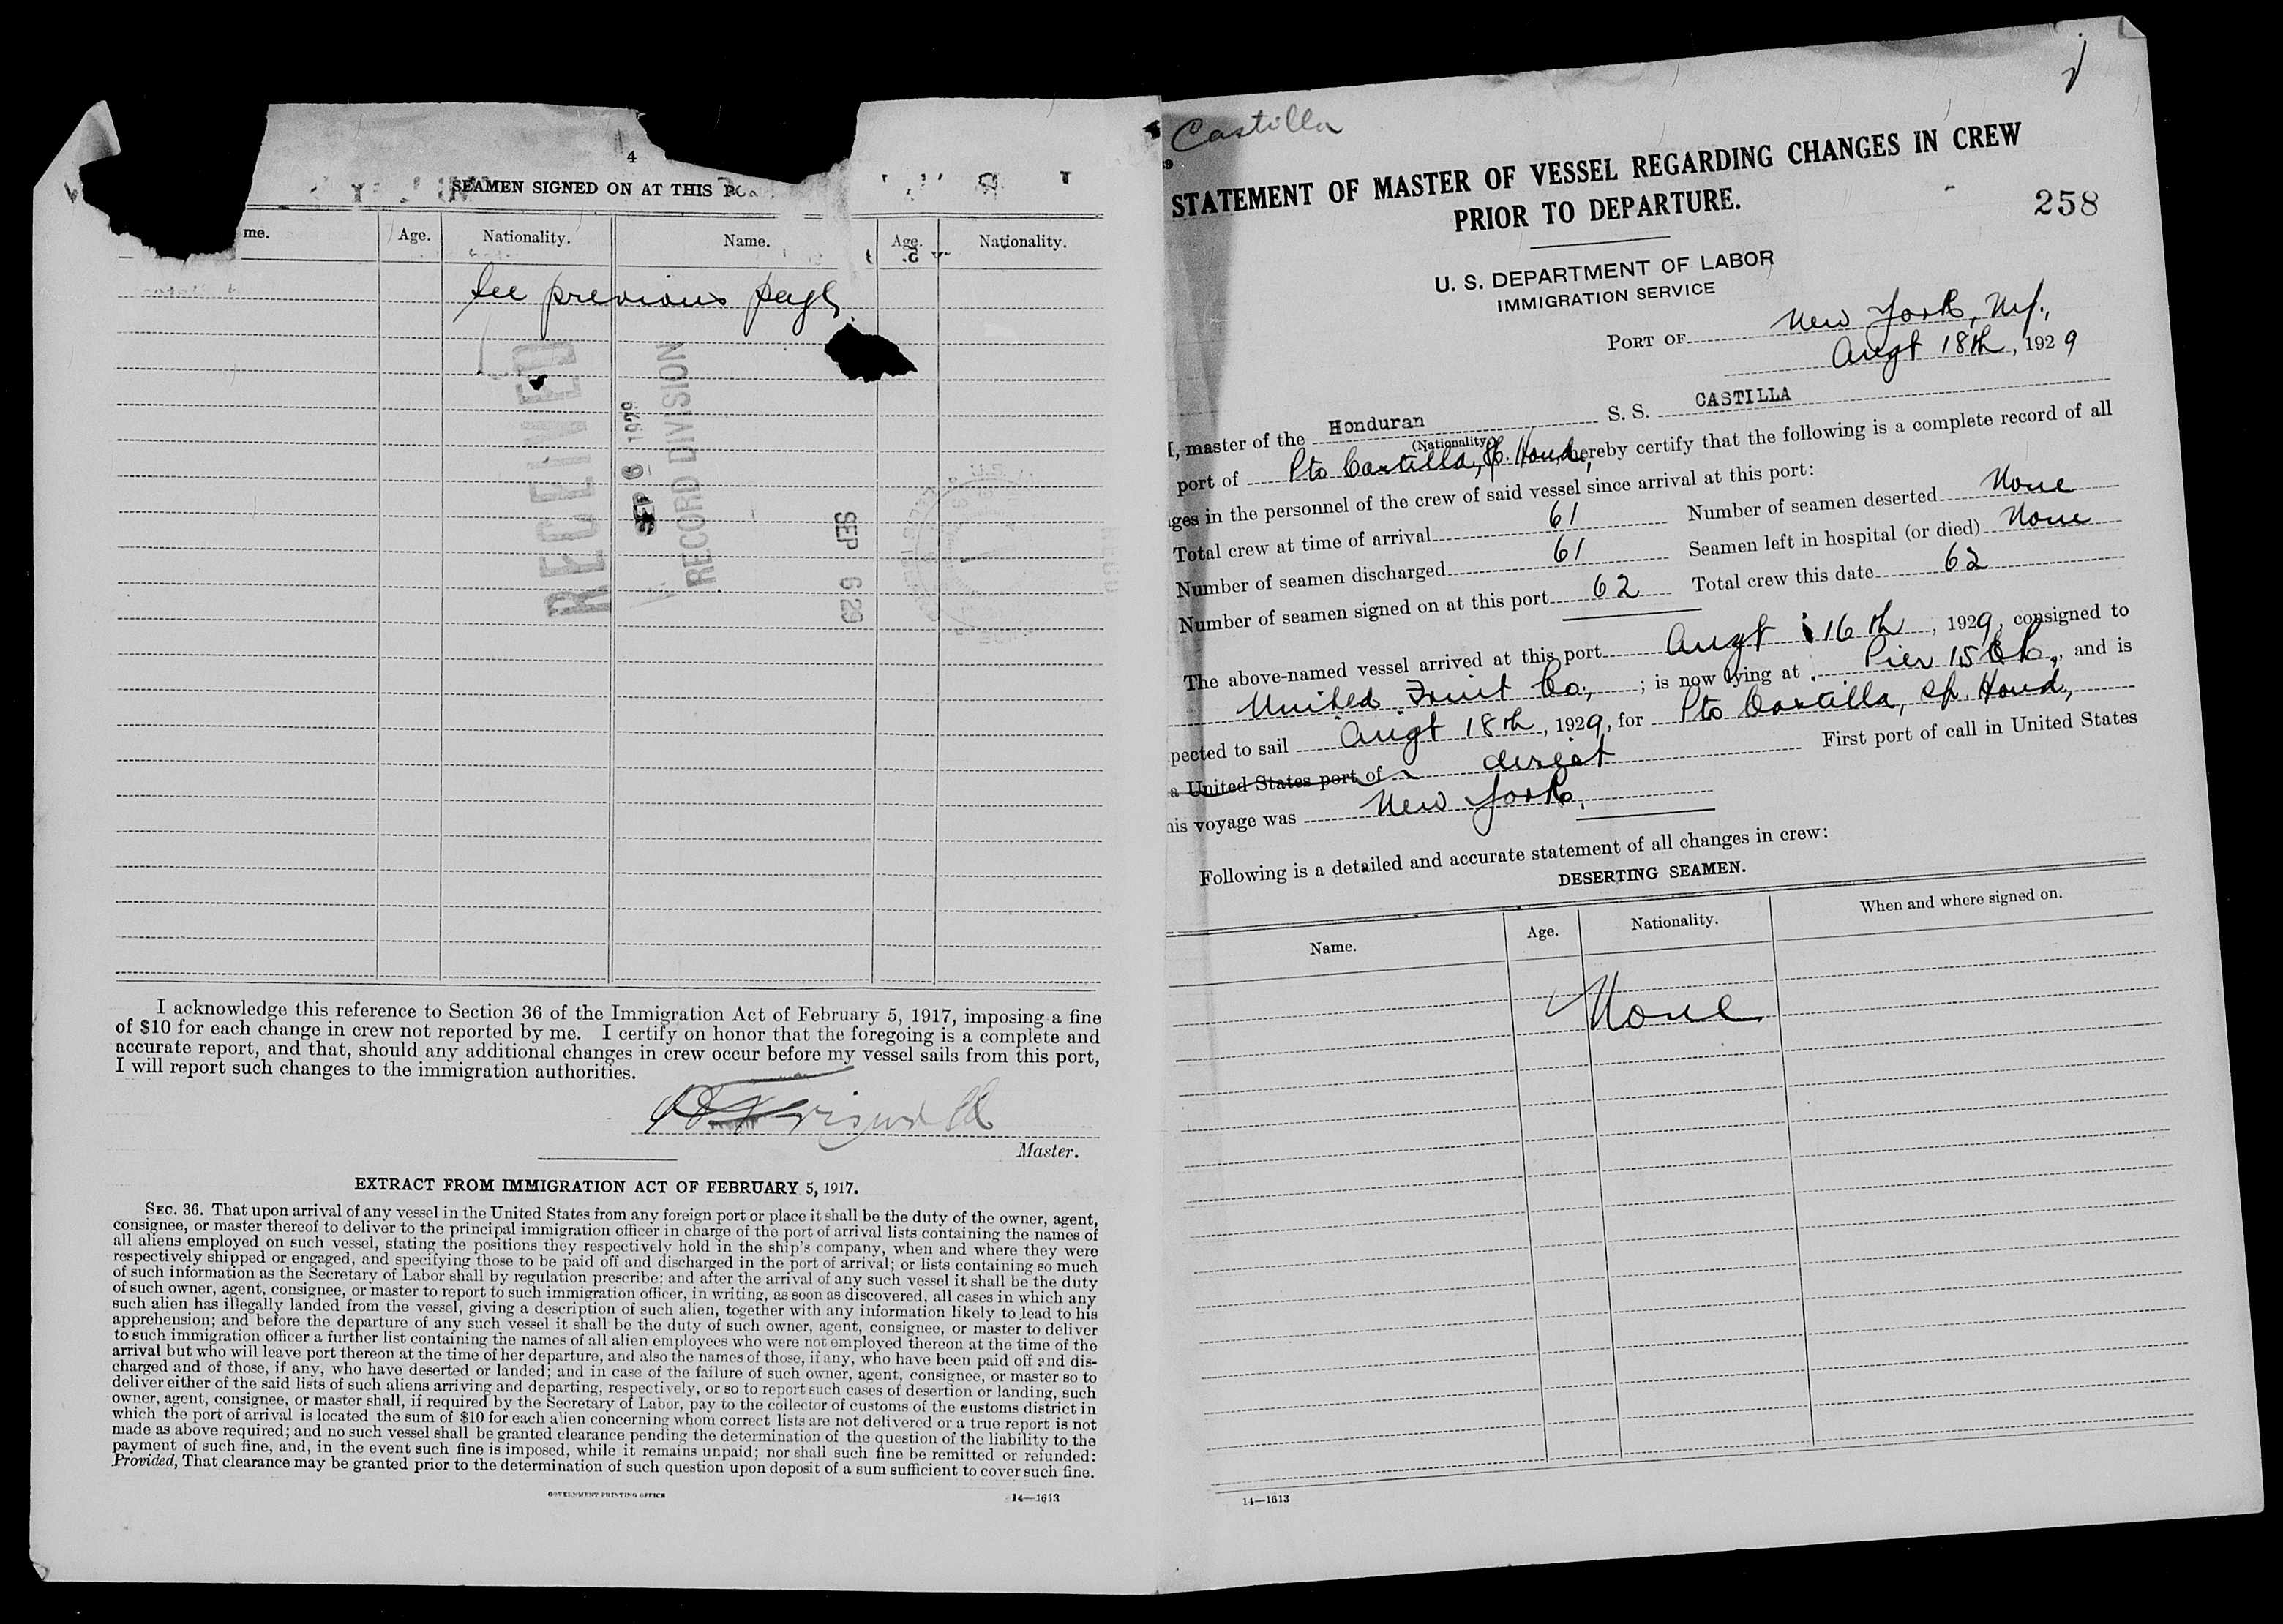 4
SEAMEN SIGNED ON AT THIS
me. Age. Nationality. Name. Age. Nationality.
See previous page.
RECEIVED
SEP 6 1929
RECORD DIVISION
SEP 6 29
I acknowledge this reference to Section 36 of the Immigration Act of February 5, 1917, imposing a fine
of $10 for each change in crew not reported by me. I certify on honor that the foregoing is a complete and
accurate report, and that, should any additional changes in crew occur before my vessel sails from this port,
I will report such changes to the immigration authorities.
Master.
EXTRACT FROM IMMIGRATION ACT OF FEBRUARY 5, 1917.
SEC. 36. That upon arrival of any vessel in the United States from any foreign port or place it shall be the duty of the owner, agent,
consignee, or master thereof to deliver to the principal immigration officer in charge of the port of arrival lists containing the names of
all aliens employed on such vessel, stating the positions they respectively hold in the ship's company, when and where they were
respectively shipped or engaged, and specifying those to be paid off and discharged in the port of arrival; or lists containing so much
of such information as the Secretary of Labor shall by regulation prescribe; and after the arrival of any such vessel it shall be the duty
of such owner, agent, consignee, or master to report to such immigration officer, in writing, as soon as discovered, all cases in which any
such alien has illegally landed from the vessel, giving a description of such alien, together with any information likely to lead to his
apprehension; and before the departure of any such vessel it shall be the duty of such owner, agent, consignee, or master to deliver
to such immigration officer a further list containing the names of all alien employees who were not employed thereon at the time of the
arrival but who will leave port thereon at the time of her departure, and also the names of those, if any, who have been paid off and dis-
charged and of those, if any, who have deserted or landed; and in case of the failure of such owner, agent, consignee, or master so to
deliver either of the said lists of such aliens arriving and departing, respectively, or so to report such cases of desertion or landing, such
owner, agent, consignee, or master shall, if required by the Secretary of Labor, pay to the collector of customs of the customs district in
which the port of arrival is located the sum of $10 for each alien concerning whom correct lists are not delivered or a true report is not
made as above required; and no such vessel shall be granted clearance pending the determination of the question of the liability to the
payment of such fine, and, in the event such fine is imposed, while it remains unpaid; nor shall such fine be remitted or refunded:
Provided, That clearance may be granted prior to the determination of such question upon deposit of a sum sufficient to cover such fine.
GOVERNMENT PRINTING OFFICE 14—1613
Castilla
STATEMENT OF MASTER OF VESSEL REGARDING CHANGES IN CREW
PRIOR TO DEPARTURE.
258
U. S. DEPARTMENT OF LABOR
IMMIGRATION SERVICE
PORT OF New York, N.Y.,
Augt 18th, 1929
I, master of the Honduran S. S. CASTILLA
(Nationality)
port of Pto Castilla, Sp. Hond, hereby certify that the following is a complete record of all
ges in the personnel of the crew of said vessel since arrival at this port:
Total crew at time of arrival 61 Number of seamen deserted None
Number of seamen discharged 61 Seamen left in hospital (or died) None
Number of seamen signed on at this port 62 Total crew this date 62
The above-named vessel arrived at this port Augt 16th, 1929, consigned to
United Fruit Co., ; is now lying at Pier 15 , and is
pected to sail Augt 18th, 1929, for Pto Castilla, Sp. Hond,
a United States port of direct First port of call in United States
his voyage was New York.
Following is a detailed and accurate statement of all changes in crew:
DESERTING SEAMEN.
Name. Age. Nationality. When and where signed on.
None
14—1613